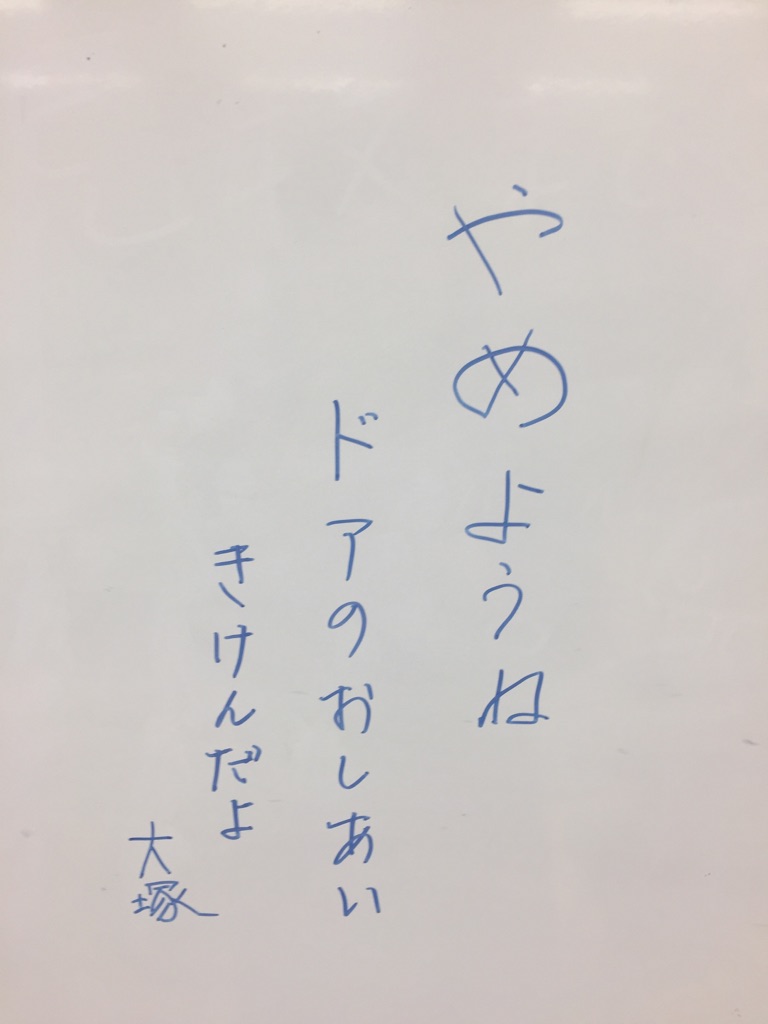 やめようね
ドアのおしあい
きけんだよ
大塚